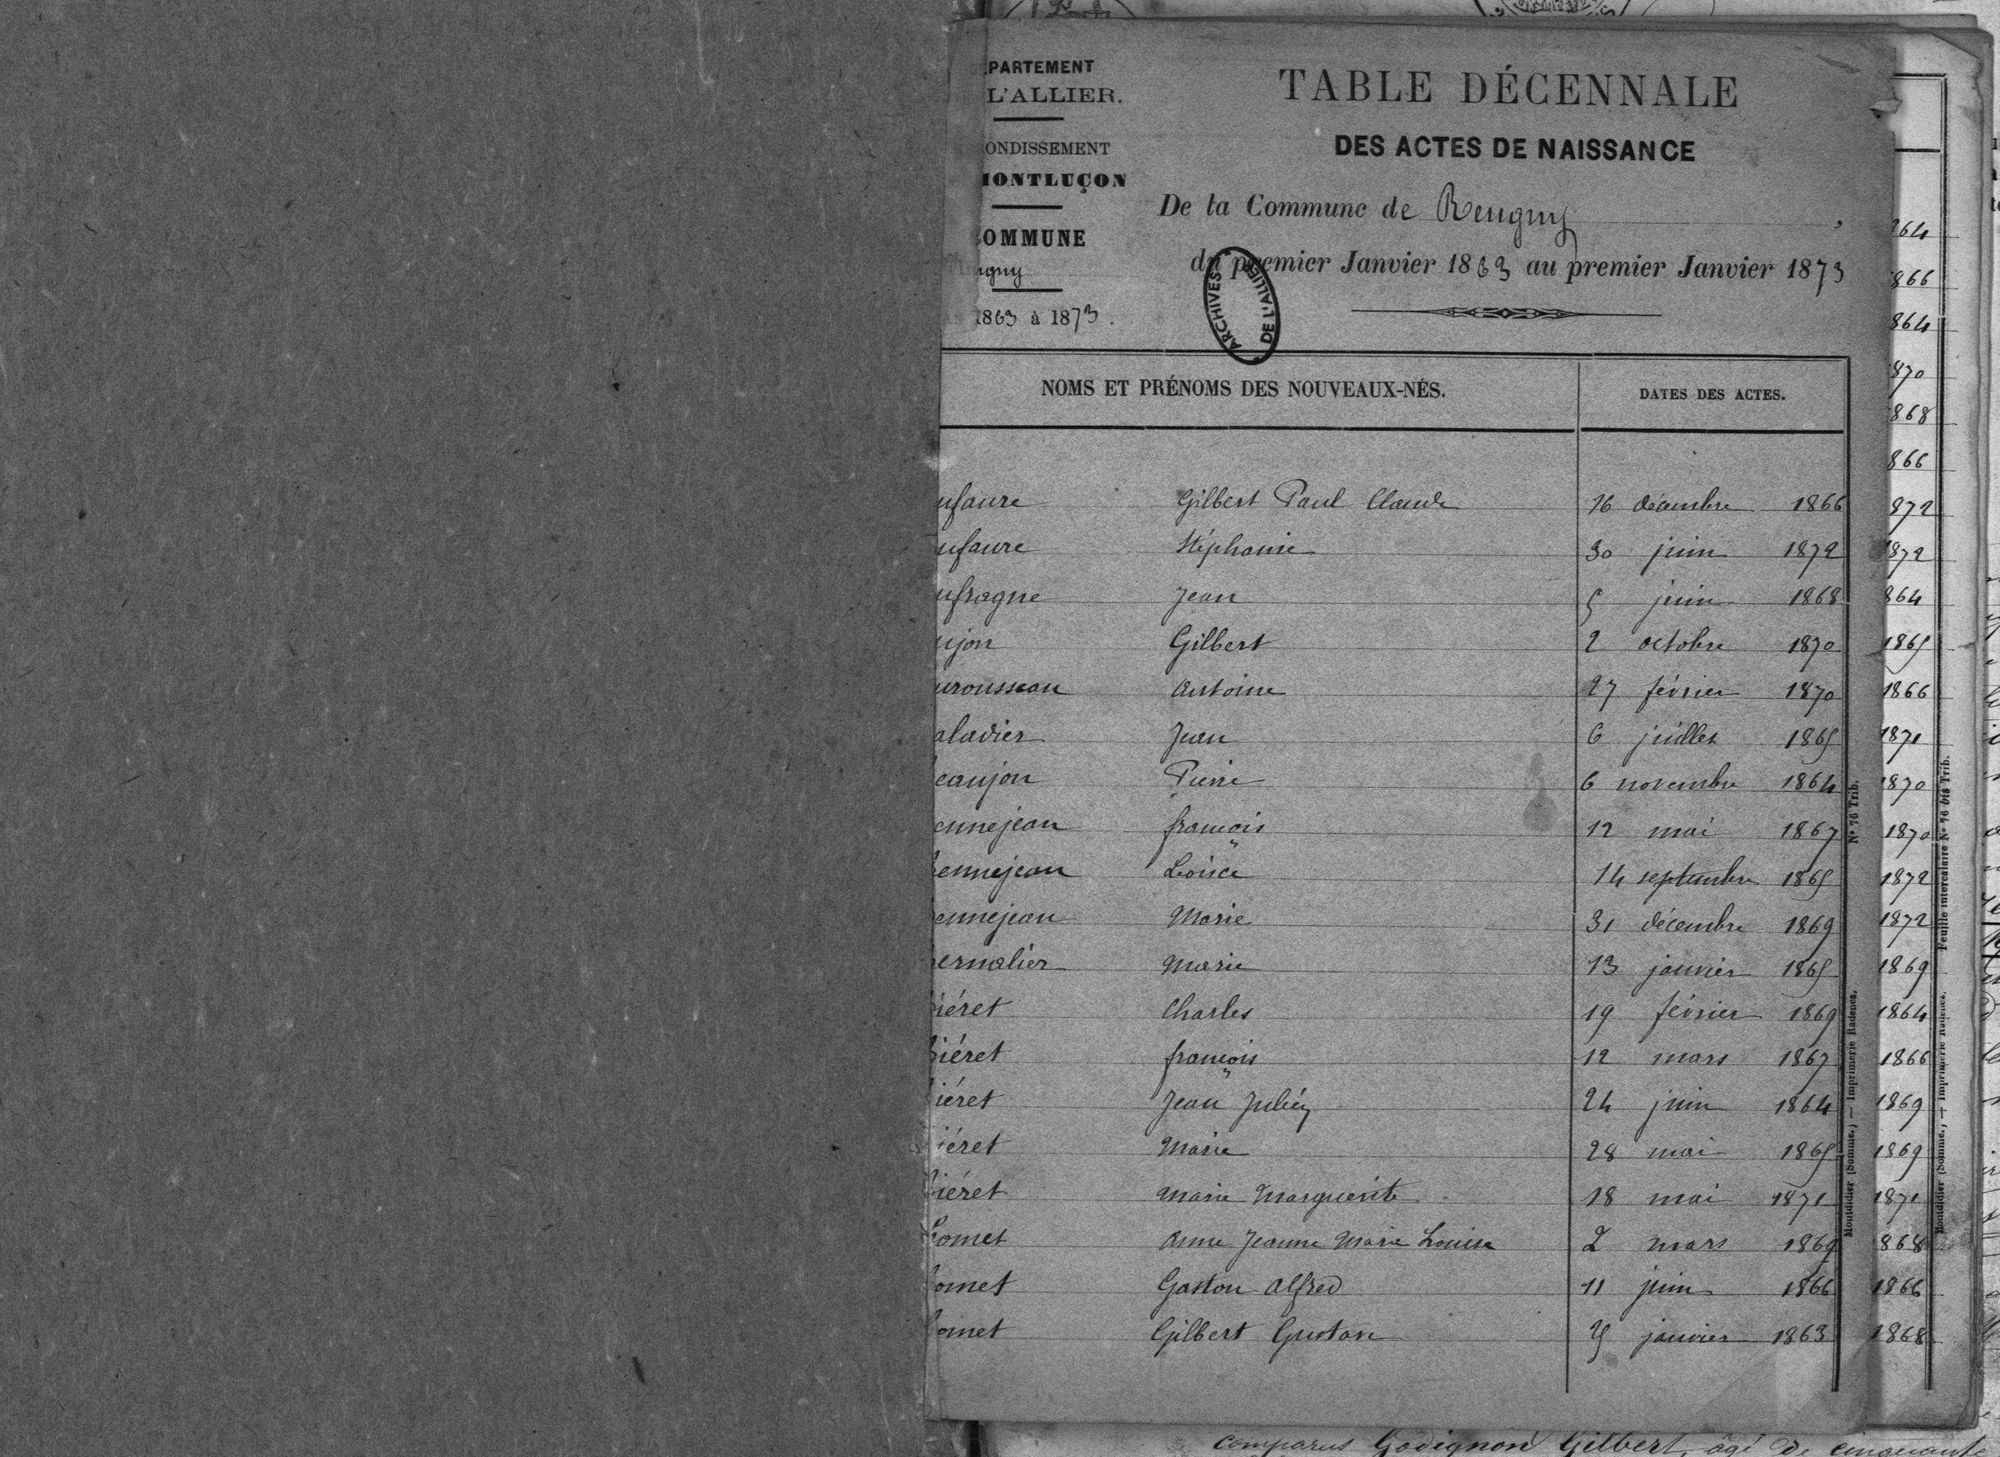 PARTEMENT
L'ALLIER.
ONDISSEMENT
MONTLUÇON
COMMUNE
ugny
1863 à 1873.
TABLE DÉCENNALE
DES ACTES DE NAISSANCE
De la Commune de Reugny,
du premier Janvier 1863 au premier Janvier 1873
ARCHIVES DE L'ALLIER
NOMS ET PRÉNOMS DES NOUVEAUX-NÉS. DATES DES ACTES.
ufaure Gilbert Paul Claude 16 décembre 1866
ufaure Stéphanie 30 juin 1872
ufragne Jean 5 juin 1868
ujon Gilbert 2 octobre 1870
urousseau Antoine 27 février 1870
aladier Jean 6 juillet 1865
eaujon Pierre 6 novembre 1864
ennejean françois 12 mai 1867
ennejean 14 septembre 1865
ennejean Marie 31 décembre 1869
ernalier Marie 13 janvier 1865
iéret Charles 19 février 1869
iéret françois 12 mars 1867
iéret Jean Julien 24 juin 1864
iéret Marie 28 mai 1865
iéret Marie Marguerite 18 mai 1871
omet Anne Jeanne Marie Louise 2 mars 1869
omet Gaston Alfred 11 juin 1866
omet Gilbert Gustave janvier 1863
N° 76 Trib.
Montdidier (Somme.) — Imprimerie Radenez.
864
866
864
870
868
866
872
1872
864
1865
1866
1871
1870
1870
1872
1872
1869
1864
1866
1869
1869
1871
868
1866
1868
Feuille intercalaire N° 76 bis Trib.
Montdidier (Somme.) — Imprimerie Radenez.
comparus Godignon Gilbert, âgé de cinquante